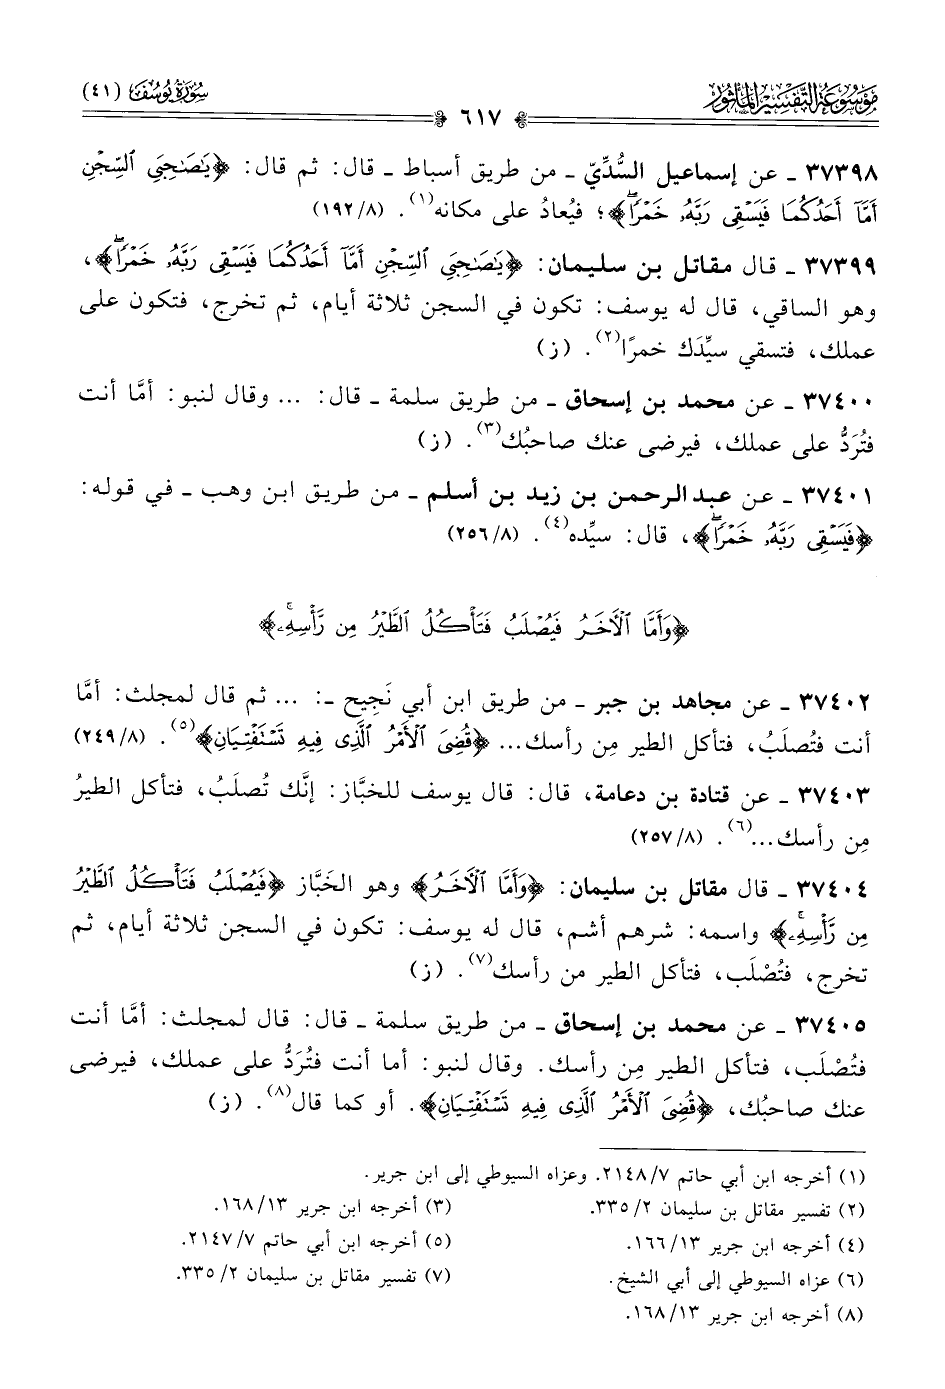 موسوعة التفسير المأثور
سورة يوسف (٤١)
٦١٧
٣٧٣٩٨ ـ عن إسماعيل السُّدِّيّ ـ من طريق أسباط ـ قال: ثم قال: ﴿يَٰصَٰحِبَيِ ٱلسِّجۡنِ
أَمَّآ أَحَدُكُمَا فَيَسۡقِي رَبَّهُۥ خَمۡرٗاۖ﴾؛ فيُعادُ على مكانه(١). (١٩٢/٨)
٣٧٣٩٩ ـ قال مقاتل بن سليمان: ﴿يَٰصَٰحِبَيِ ٱلسِّجۡنِ أَمَّآ أَحَدُكُمَا فَيَسۡقِي رَبَّهُۥ خَمۡرٗاۖ﴾،
وهو الساقي، قال له يوسف: تكون في السجن ثلاثة أيام، ثم تخرج، فتكون على
عملك، فتسقي سيِّدَك خمرًا(٢). (ز)
٣٧٤٠٠ ـ عن محمد بن إسحاق ـ من طريق سلمة ـ قال: ... وقال لنبو: أمَّا أنت
فتُرَدُّ على عملك، فيرضى عنك صاحبُك(٣). (ز)
٣٧٤٠١ ـ عن عبد الرحمن بن زيد بن أسلم ـ من طريق ابن وهب ـ في قوله:
﴿فَيَسۡقِي رَبَّهُۥ خَمۡرٗاۖ﴾، قال: سيِّده(٤). (٢٥٦/٨)
﴿وَأَمَّا ٱلۡأٓخَرُ فَيُصۡلَبُ فَتَأۡكُلُ ٱلطَّيۡرُ مِن رَّأۡسِهِۦۚ﴾
٣٧٤٠٢ ـ عن مجاهد بن جبر ـ من طريق ابن أبي نَجيح ـ: ... ثم قال لمجلث: أمَّا
أنت فتُصلَبُ، فتأكل الطير مِن رأسك... ﴿قُضِيَ ٱلۡأَمۡرُ ٱلَّذِي فِيهِ تَسۡتَفۡتِيَانِ﴾(٥). (٢٤٩/٨)
٣٧٤٠٣ ـ عن قتادة بن دعامة، قال: قال يوسف للخبَّاز: إنَّك تُصلَبُ، فتأكل الطيرُ
مِن رأسك...(٦). (٢٥٧/٨)
٣٧٤٠٤ ـ قال مقاتل بن سليمان: ﴿وَأَمَّا ٱلۡأٓخَرُ﴾ وهو الخبَّاز ﴿فَيُصۡلَبُ فَتَأۡكُلُ ٱلطَّيۡرُ
مِن رَّأۡسِهِۦۚ﴾ واسمه: شرهم أشم، قال له يوسف: تكون في السجن ثلاثة أيام، ثم
تخرج، فتُصْلَب، فتأكل الطير من رأسك(٧). (ز)
٣٧٤٠٥ ـ عن محمد بن إسحاق ـ من طريق سلمة ـ قال: قال لمجلث: أمَّا أنت
فتُصْلَب، فتأكل الطير مِن رأسك. وقال لنبو: أما أنت فتُرَدُّ على عملك، فيرضى
عنك صاحبُك، ﴿قُضِيَ ٱلۡأَمۡرُ ٱلَّذِي فِيهِ تَسۡتَفۡتِيَانِ﴾. أو كما قال(٨). (ز)
(١) أخرجه ابن أبي حاتم ٢١٤٨/٧. وعزاه السيوطي إلى ابن جرير.
(٢) تفسير مقاتل بن سليمان ٣٣٥/٢.
(٣) أخرجه ابن جرير ١٦٨/١٣.
(٤) أخرجه ابن جرير ١٦٦/١٣.
(٥) أخرجه ابن أبي حاتم ٢١٤٧/٧.
(٦) عزاه السيوطي إلى أبي الشيخ.
(٧) تفسير مقاتل بن سليمان ٣٣٥/٢.
(٨) أخرجه ابن جرير ١٦٨/١٣.